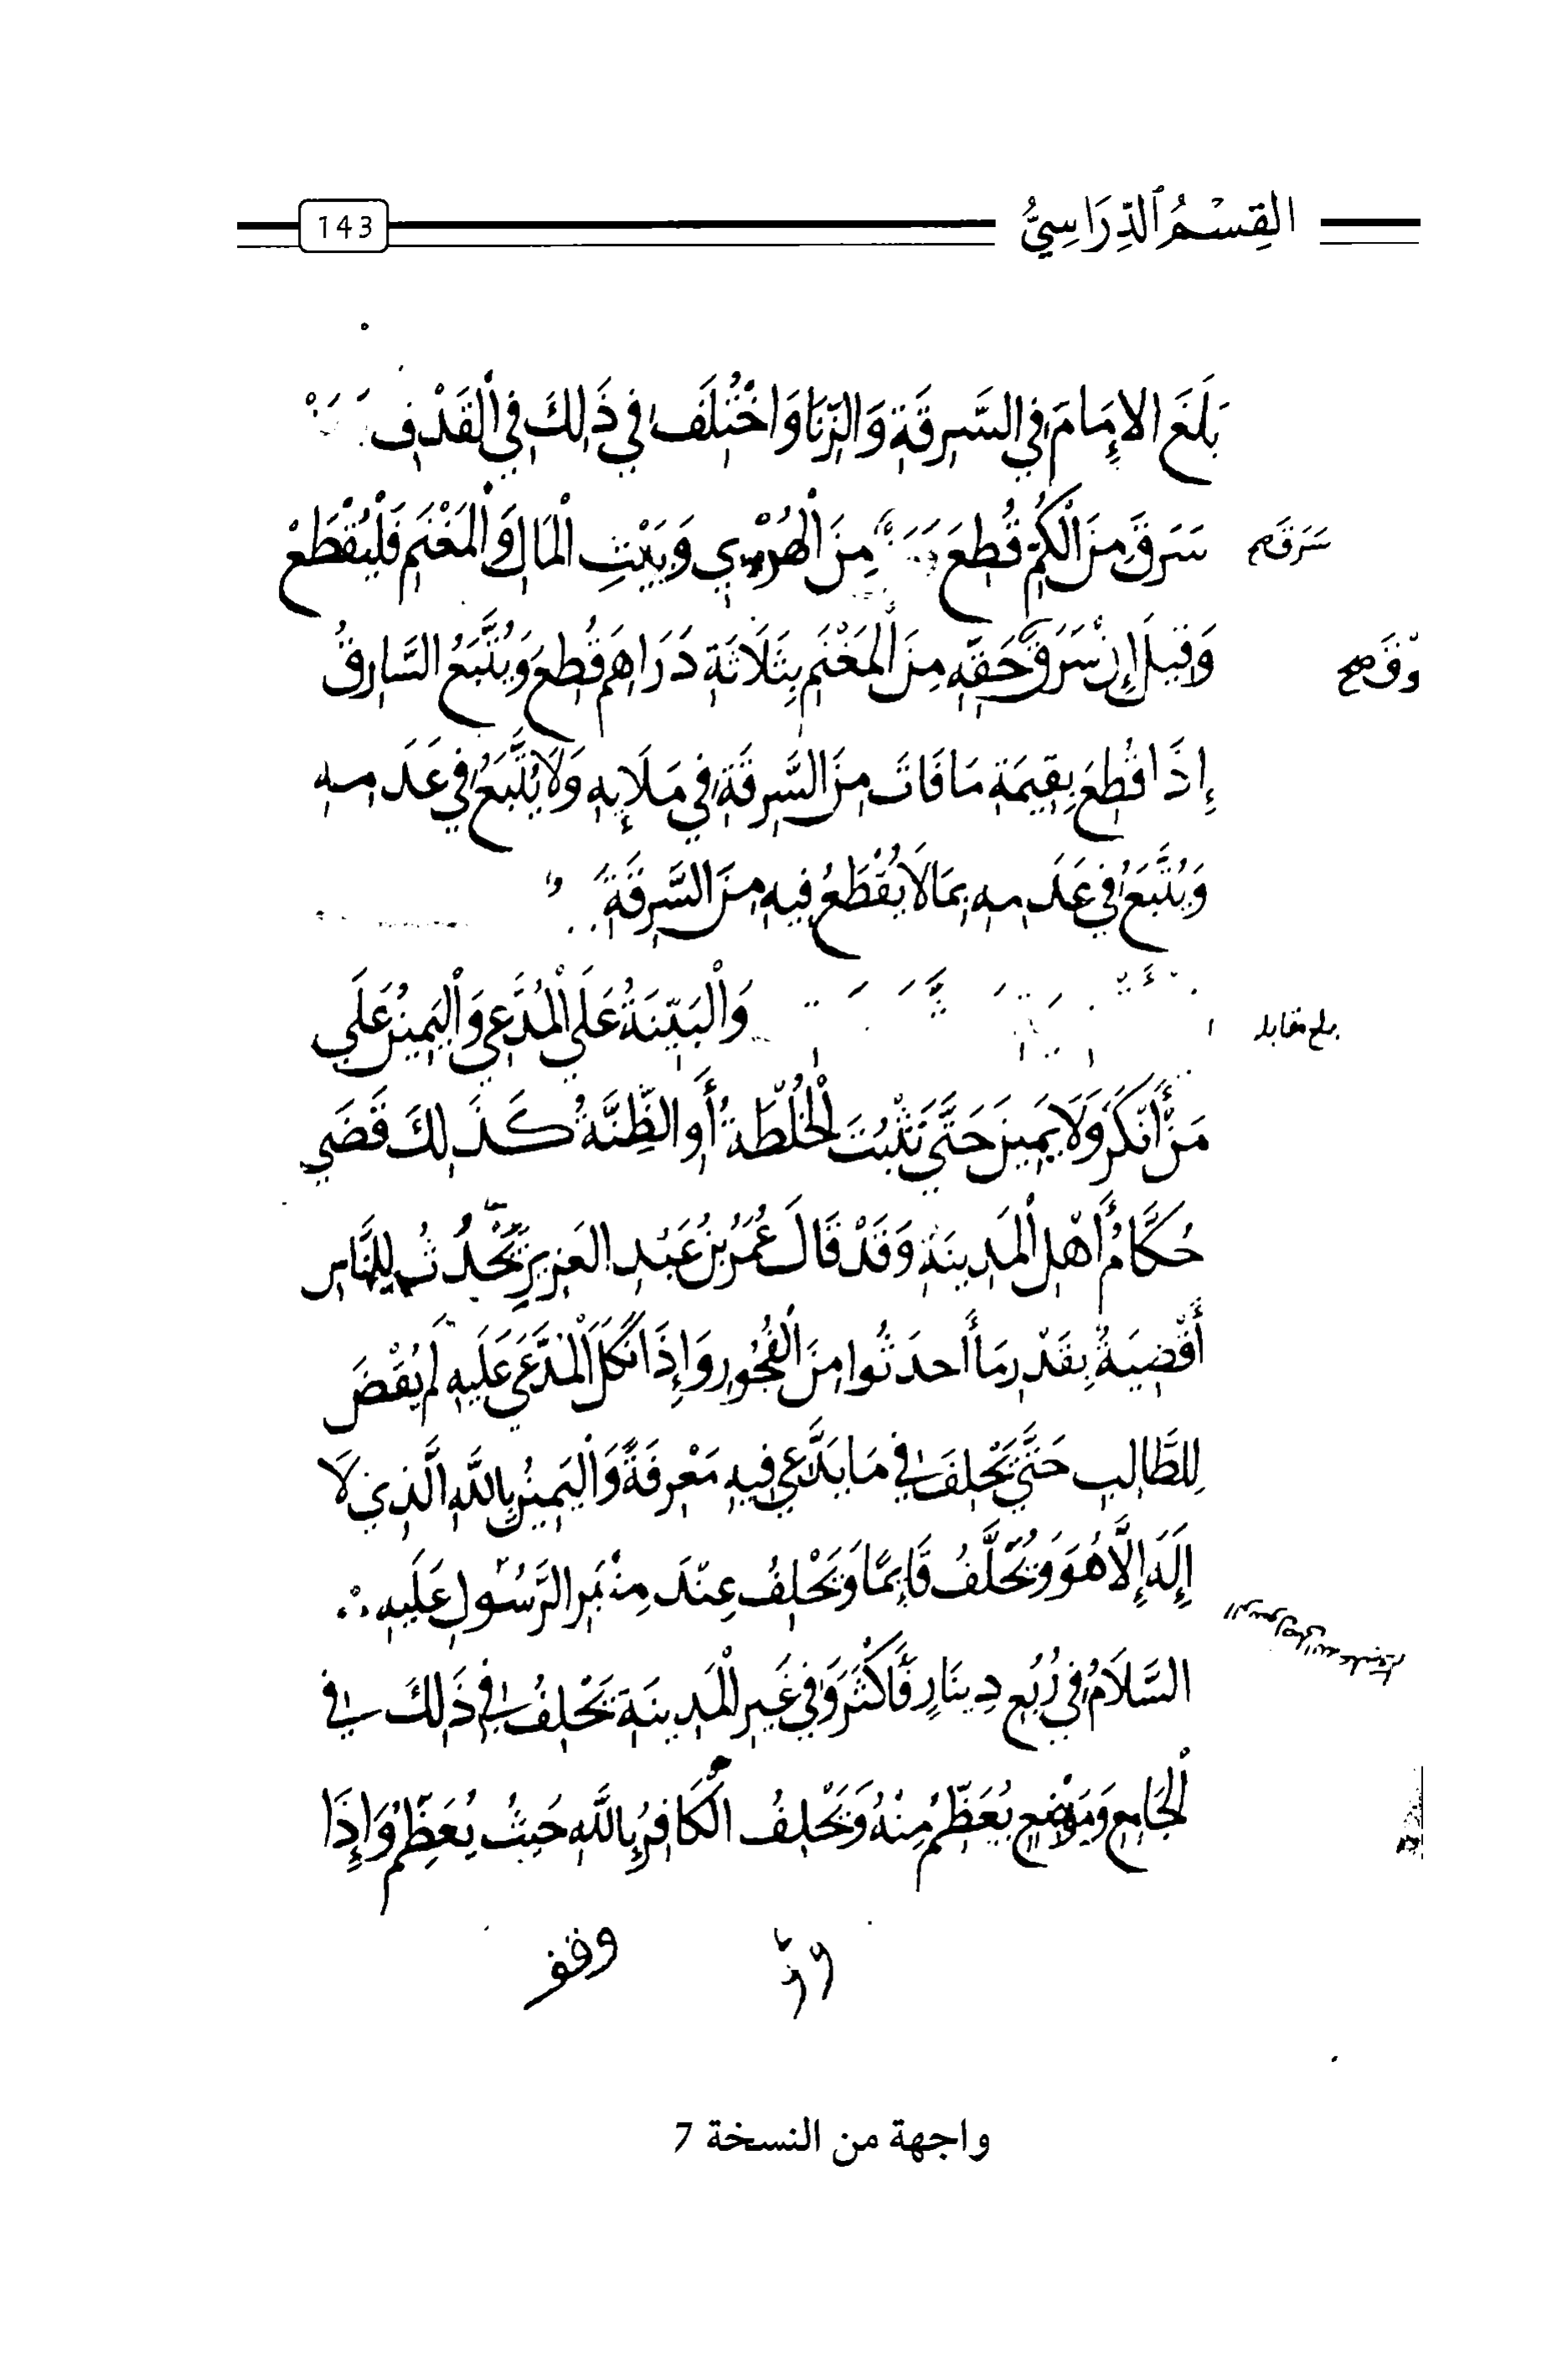 القِسْمُ الدِّرَاسِيُّ
143
بَلَغَ الإِمَامَ فِي السَّرِقَةِ وَالزِّنَا وَاخْتُلِفَ فِي ذَلِكَ فِي الْقَذْفِ
سَرَقَ مِنَ الْكُمِّ قُطِعَ مِنَ الْهُرْيِ وَبَيْتِ الْمَالِ وَالْمَغْنَمِ فَلْيُقْطَعْ
سَرَقَ صح
وَقِيلَ إِنْ سَرَقَ حَقِّهِ مِنَ الْمَغْنَمِ بِثَلَاثَةِ دَرَاهِمَ قُطِعَ وَيُتَّبَعُ السَّارِقُ
إِذَا قُطِعَ بِقِيمَةِ مَا فَاتَ مِنَ السَّرِقَةِ فِي مَلَائِهِ وَلَا يُتَّبَعُ فِي عَدَمِهِ
وَيُتَّبَعُ فِي عَدَمِهِ بِمَا لَا يُقْطَعُ فِيهِ مِنَ السَّرِقَةِ
وَالْبَيِّنَةُ عَلَى الْمُدَّعِي وَالْيَمِينُ عَلَى
بلغ مقابلة
مَنْ أَنْكَرَ وَلَا يَمِينَ حَتَّى تَثْبُتَ الْخُلْطَةُ أَوِ الظِّنَّةُ كَذَلِكَ قَضَى
حُكَّامُ أَهْلِ الْمَدِينَةِ وَقَدْ قَالَ عُمَرُ بْنُ عَبْدِ الْعَزِيزِ تَحْدُثُ لِلنَّاسِ
أَقْضِيَةٌ بِقَدْرِ مَا أَحْدَثُوا مِنَ الْفُجُورِ وَإِذَا نَكَلَ الْمُدَّعَى عَلَيْهِ لَمْ يُقْضَ
لِلطَّالِبِ حَتَّى يَحْلِفَ فِي مَا يَدَّعِي فِيهِ مَعْرِفَةً وَالْيَمِينُ بِاللَّهِ الَّذِي لَا
إِلَهَ إِلَّا هُوَ وَيُحَلَّفُ قَائِمًا وَيَحْلِفُ عِنْدَ مِنْبَرِ الرَّسُولِ عَلَيْهِ
السَّلَامُ فِي رُبُعِ دِينَارٍ فَأَكْثَرَ وَفِي غَيْرِ الْمَدِينَةِ يَحْلِفُ فِي ذَلِكَ فِي
الْجَامِعِ وَمَوْضِعٍ يُعَظَّمُ مِنْهُ وَيَحْلِفُ الْكَافِرُ بِاللَّهِ حَيْثُ يُعَظِّمُ وَإِذَا
واجهة من النسخة 7